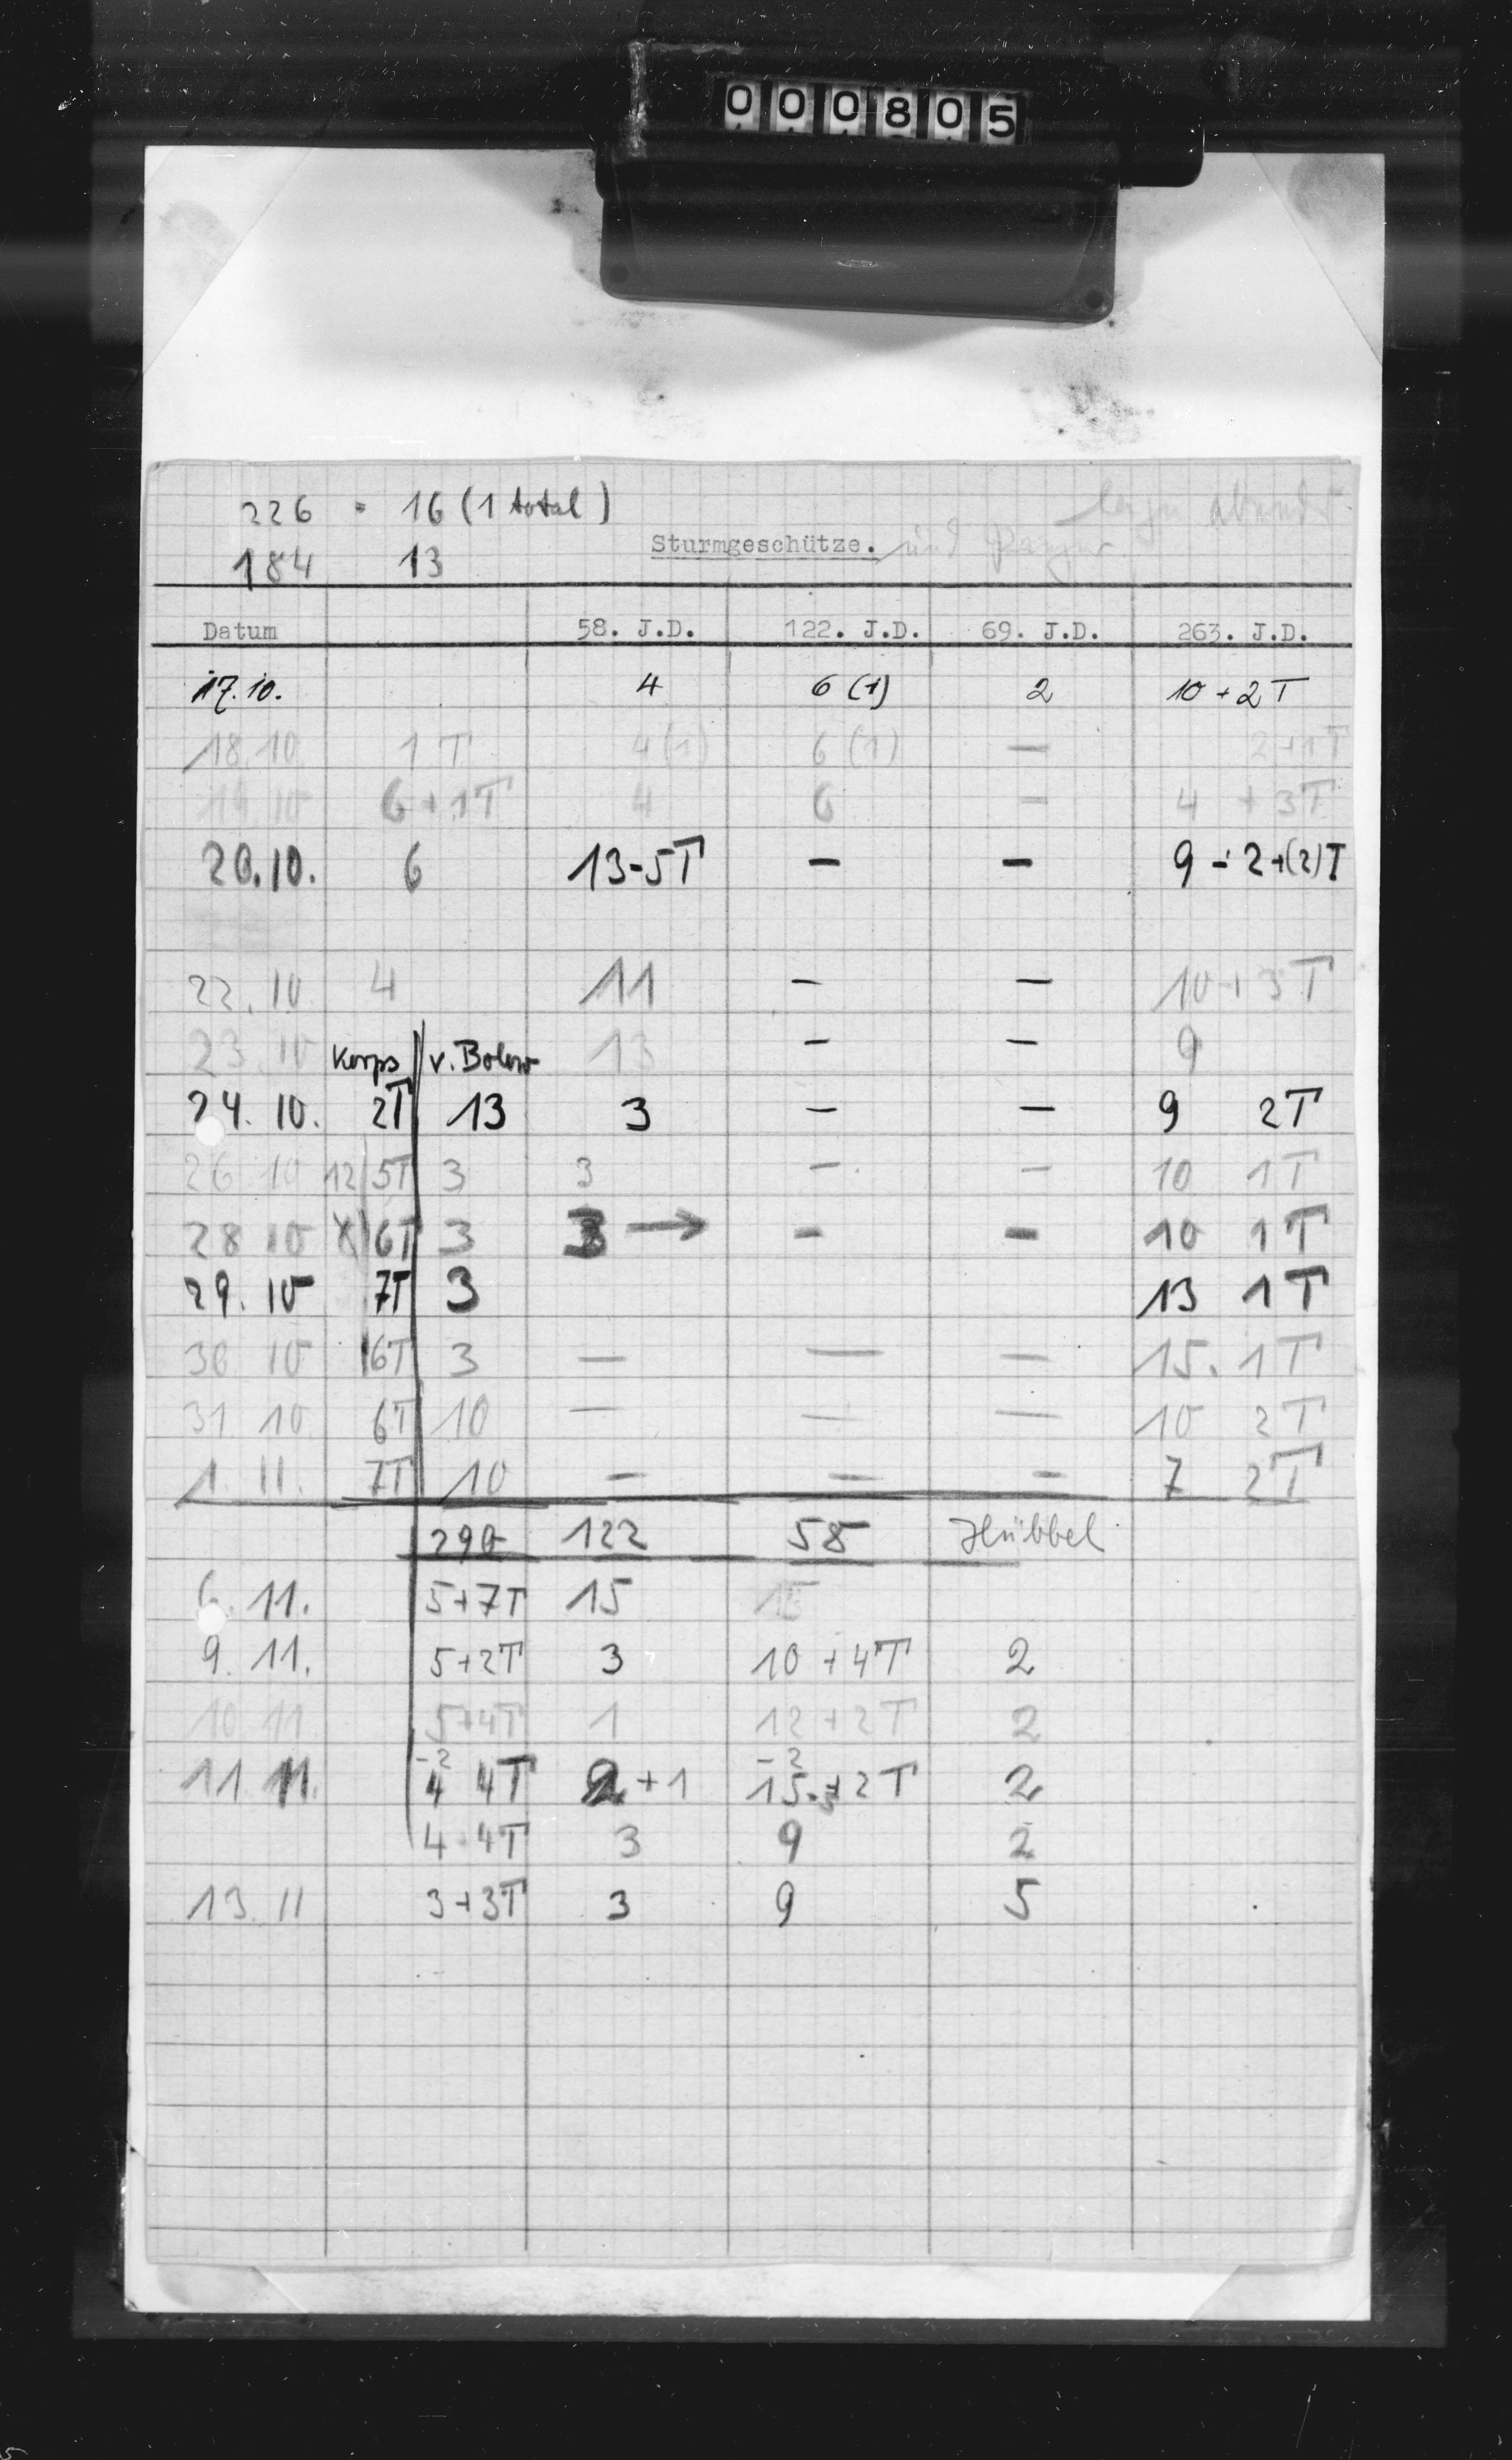 000805
226 = 16 (1 total)
184 13
Sturmgeschütze. und Panzer
Datum 58. J.D. 122. J.D. 69. J.D. 263. J.D.
17.10. 4 6 (1) 2 10 + 2T
18.10. 1 T 4 (1) 6 (1) — 2+1T
19.10 6 + 1T 4 6 — 4 + 3T
20.10. 6 13-5T — — 9 - 2+(2)T
22.10. 4 11 — — 10 + 3T
23.10 Korps v. Bolow 13 — — 9
24.10. 2T 13 3 — — 9 2T
26 10 12 5T 3 3 — — 10 1T
28 10 6T 3 3 → — — 10 1T
29.10 7T 3 13 1T
30 10 6T 3 — — — 15. 1T
31. 10. 6T 10 — — — 10 2T
1. 11. 7T 10 — — — 7 2T
290 122 58 Hübbel
6.11. 5+7T 15 15
9.11. 5+2T 3 10 + 4T 2
10.11. 5+4T 1 12 + 2T 2
-2 -2
11.11. 4 4T 2+1 15 +2T 2
4 4T 3 9 2
13.11 3+3T 3 9 5